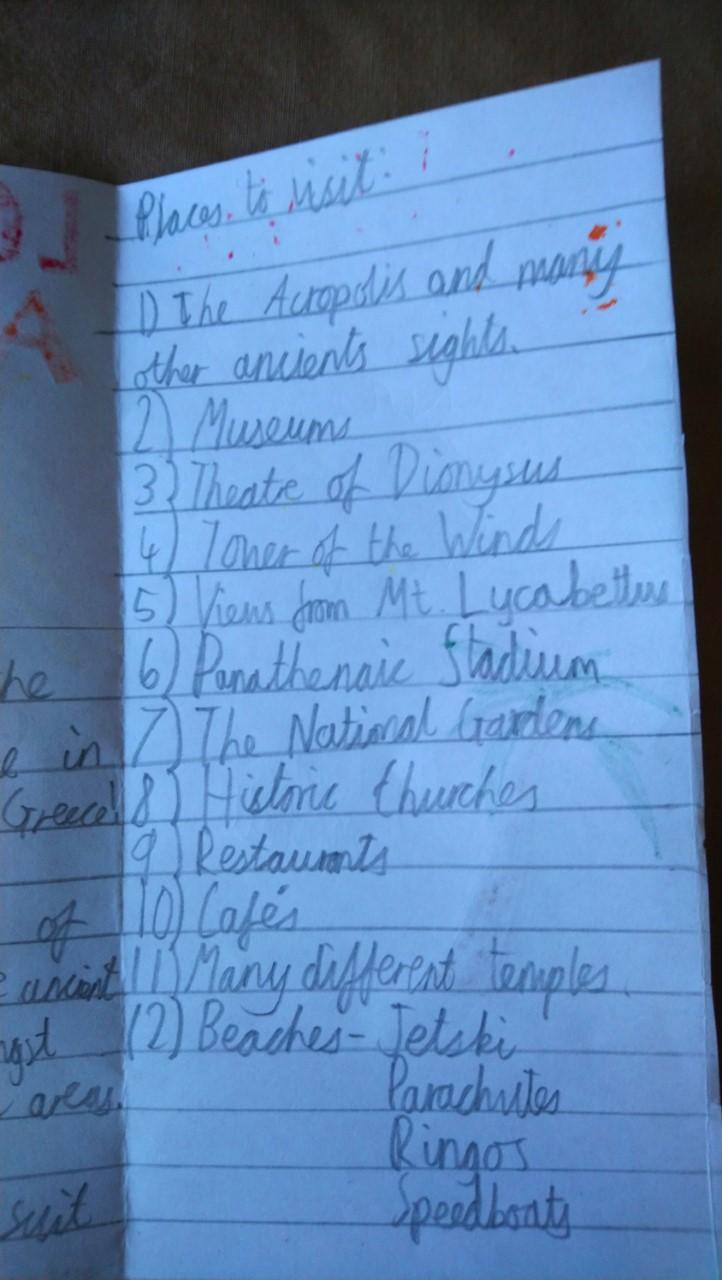 Places to visit:
1) The Acropolis and many
other ancients sights.
2) Museums
3) Theatre of Dionysus
4) Tower of the Winds
5) Views from Mt. Lycabettus
6) Panathenaic Stadium
7) The National Gardens
8) Historic Churches
9) Restaurants
10) Cafés
11) Many different temples.
12) Beaches - Jetski
Parachutes
Ringos
Speedboats
he
e in
Greece!
of
ancient
ngst
areas.
suit